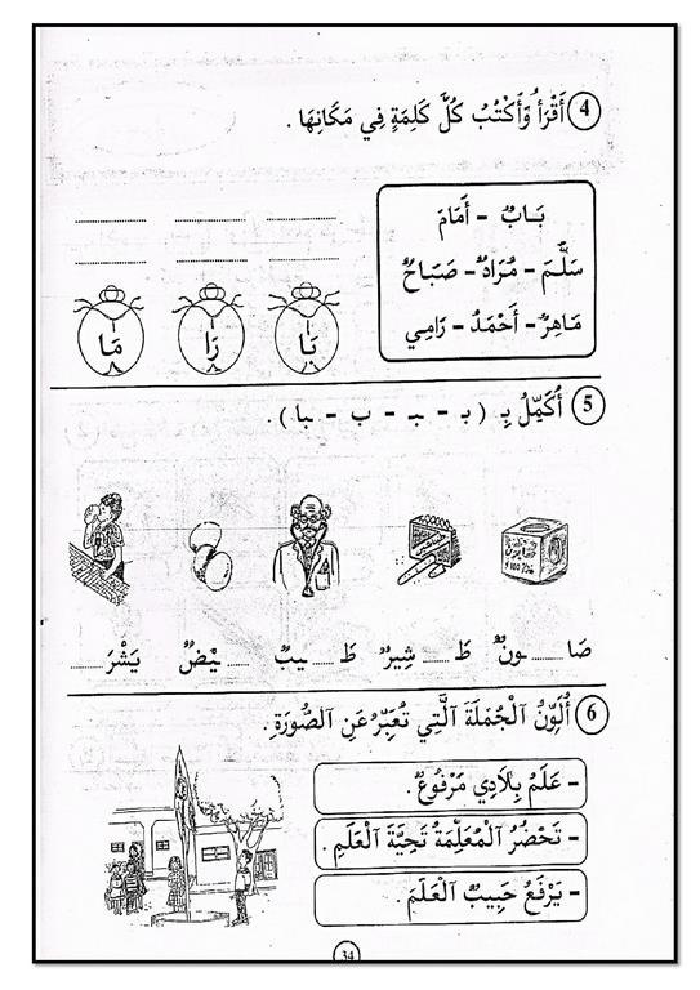 4 أَقْرَأُ وَأَكْتُبُ كُلَّ كَلِمَةٍ فِي مَكَانِهَا .
بَابٌ - أَمَامَ
سَلَّمَ - مُرَادٌ - صَبَاحٌ
مَاهِرٌ - أَحْمَدُ - رَامِي
بَا رَا مَا
5 أُكَمِّلُ بِـ ( بـ - ـبـ - ب - ـبا ) .
صَا ........ ونٌ طَ ........ شِيرٌ طَ ........ ـيبٌ ........ ـيْضٌ يَشْرَ ........
6 أُلَوِّنُ ٱلْجُمْلَةَ ٱلَّتِي تُعَبِّرُ عَنِ ٱلصُّورَةِ .
- عَلَمُ بِلَادِي مَرْفُوعٌ .
- تَحْضُرُ ٱلْمُعَلِّمَةُ تَحِيَّةَ ٱلْعَلَمِ .
- يَرْفَعُ حَبِيبٌ ٱلْعَلَمَ .
34